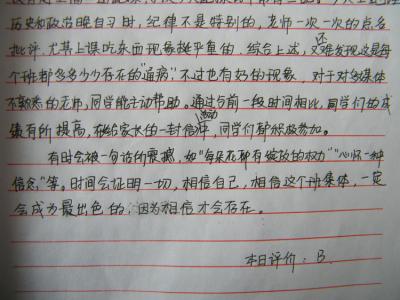 历史和政治晚自习时，纪律不是特别的，老师一次一次的点名
批评。尤其上课吃东西现象挺严重的，综合上述，还又难发现这是每
个班都多多少少存在的“通病”，不过也有好的现象，对于对多媒体
不熟悉的老师，同学能主动帮助。通过与前一段时间相比，同学们的成
绩有所提高，在给家长的一封信活动中，同学们都积极参加。
有时会被一句话所震撼，如“每朵花都有绽放的权力”“心怀一种
信念”等。时间会证明一切，相信自己，相信这个班集体，一定
会成为最出色的，因为相信才会存在。
本日评价：B